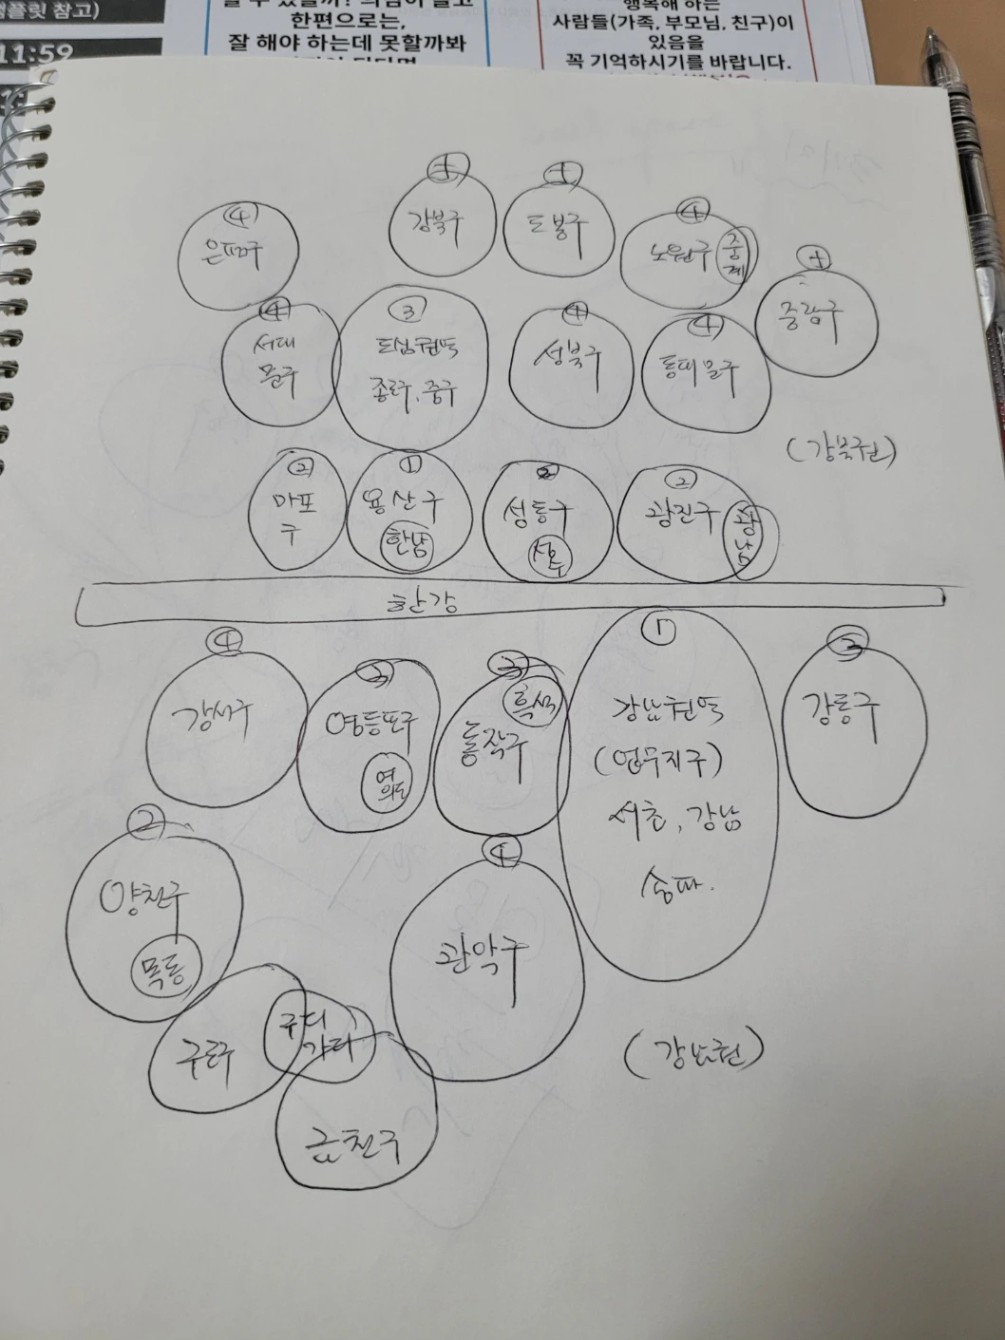 플릿 참고)
11:59
한편으로는,
잘 해야 하는데 못할까봐
행복해 하는
사람들(가족, 부모님, 친구)이
있음을
꼭 기억하시기를 바랍니다.
강북구
도봉구
④
은평구
④
노원구
중계
중랑구
④
서대
문구
③
도심권역
종로구, 중구
④
성북구
④
동대문구
(강북권)
②
마포
구
①
용산구
한남
②
성동구
성수
②
광진구
광남
한강
④
강서구
영등포구
여의도
동작구
흑석
①
강남권역
(업무지구)
서초, 강남
송파.
강동구
②
양천구
목동
관악구
구로구
구디
가디
금천구
(강남권)